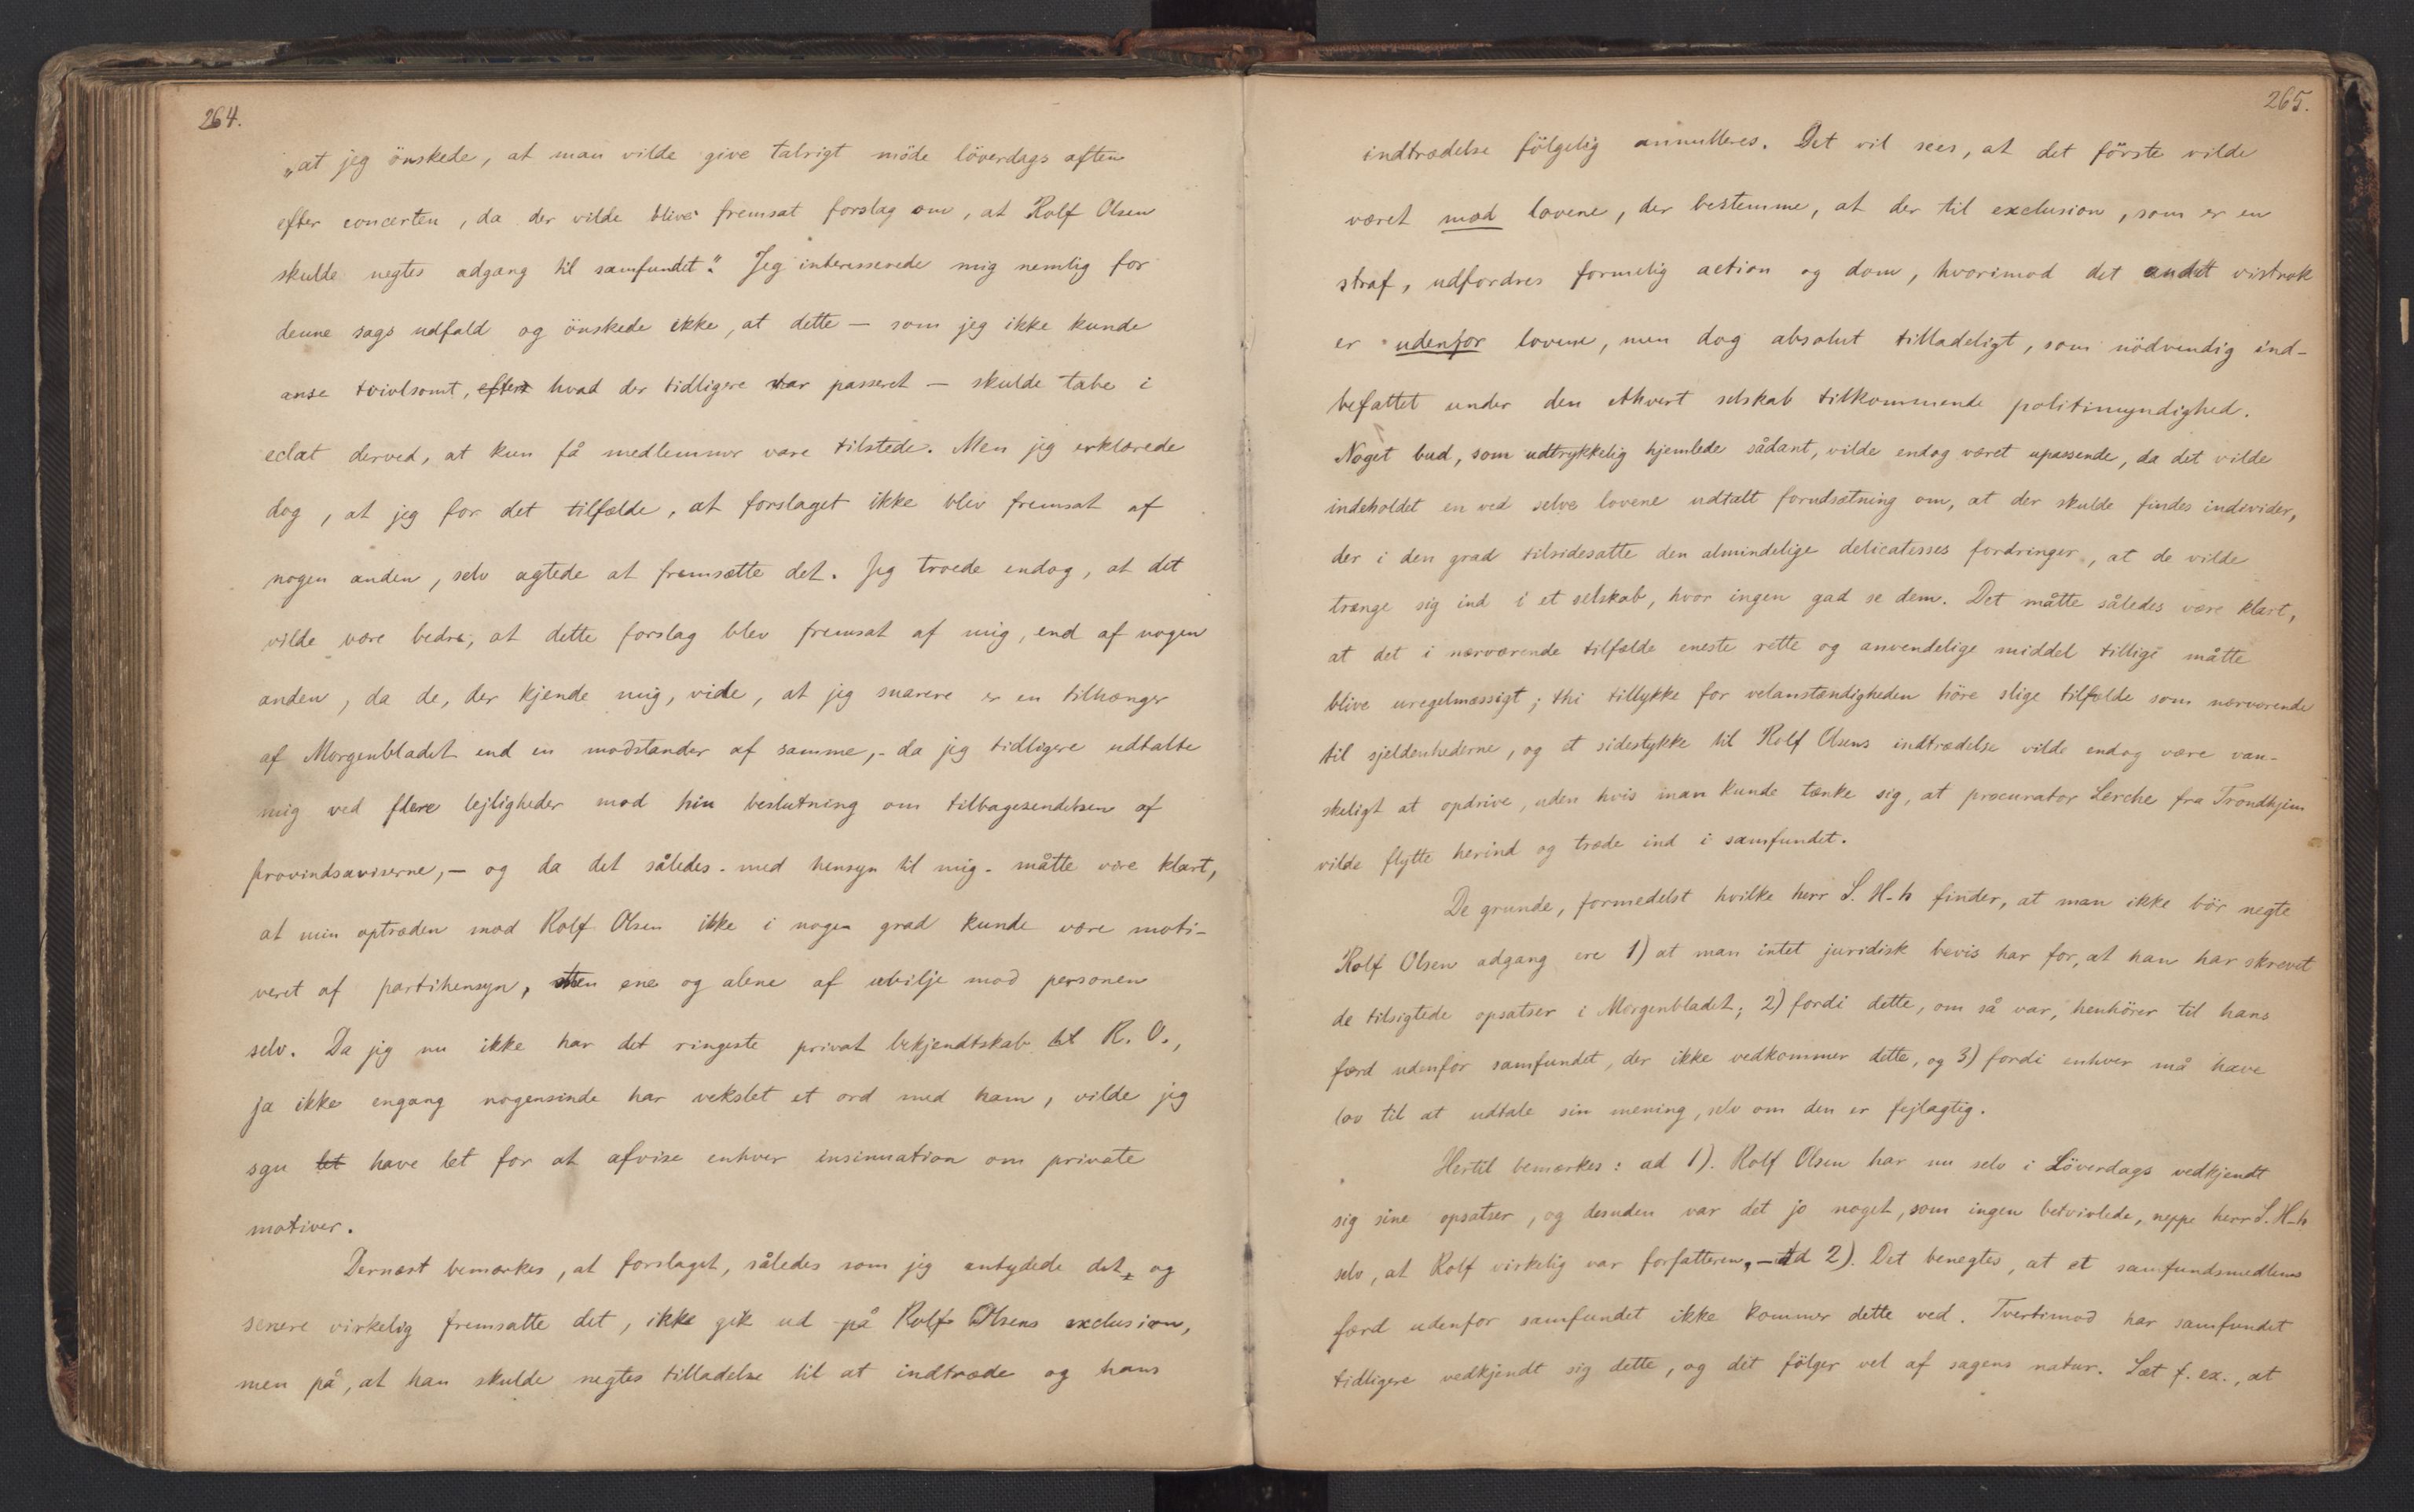 264.
„at jeg önskede, at man vilde give talrigt möde löverdags aften
efter concerten, da der vilde blive fremsat forslag om, at Rolf Olsen
skulde negtes adgang til samfundet." Jeg interesserede mig nemlig for
denne sags udfald og önskede ikke, at dette — som jeg ikke kunde
anse tvivlsomt, efter hvad der tidligere var passeret — skulde tabe i
eclat derved, at kun få medlemmer vare tilstede. Men jeg erklærede
dog, at jeg for det tilfælde, at forslaget ikke blev fremsat af
nogen anden, selv agtede at fremsætte det. Jeg troede endog, at det
vilde være bedre, at dette forslag blev fremsat af mig, end af nogen
anden, da de, der kjende mig, vide, at jeg snarere er en tilhænger
af Morgenbladet end en modstander af samme, - da jeg tidligere udtalte
mig ved flere lejligheder mod hin beslutning om tilbagesendelsen af
provindsaviserne, — og da det således - med hensyn til mig - måtte være klart,
at min optræden mod Rolf Olsen ikke i nogen grad kunde være moti-
veret af partihensyn, men ene og alene af uvilje mod personen
selv. Da jeg nu ikke har det ringeste privat bekjendtskab til R. O.,
ja ikke engang nogensinde har vekslet et ord med ham, vilde jeg
sgu let have let for at afvise enhver insinuation om private
motiver.
Dernæst bemærkes, at forslaget, således som jeg antydede det, og
senere virkelig fremsatte det, ikke gik ud på Rolf Olsens exclusion,
men på, at han skulde negtes tilladelse til at indtræde og hans
265.
indtrædelse fölgelig annulleres. Det vil sees, at det förste vilde
været mod lovene, der bestemme, at der til exclusion, som er en
straf, udfordres formelig action og dom, hvorimod det andet vistnok
er udenfor lovene, men dog absolut tilladeligt, som nödvendig ind-
befattet under den ethvert selskab tilkommende politimyndighed.
Noget bud, som udtrykkelig hjemlede sådant, vilde endog været upassende, da det vilde
indeholdet en ved selve lovene udtalt forudsætning om, at der skulde findes individer,
der i den grad tilsidesatte den almindelige delicatesses fordringer, at de vilde
trænge sig ind i et selskab, hvor ingen gad se dem. Det måtte således være klart,
at det i nærværende tilfælde eneste rette og anvendelige middel tillige måtte
blive uregelmæssigt; thi tillykke for velanstændigheden höre slige tilfælde som nærværende
til sjeldenhederne, og et sidestykke til Rolf Olsens indtrædelse vilde endog være van-
skeligt at opdrive, uden hvis man kunde tænke sig, at procurator Lerche fra Trondhjem
vilde flytte herind og træde ind i samfundet.
De grunde, formedelst hvilke herr S. H-h finder, at man ikke bör negte
Rolf Olsen adgang ere 1) at man intet juridisk bevis har for, at han har skrevet
de tilsigtede opsatser i Morgenbladet; 2) fordi dette, om så var, henhörer til hans
færd udenfor samfundet, der ikke vedkommer dette, og 3) fordi enhver må have
lov til at udtale sin mening, selv om den er fejlagtig.
Hertil bemærkes: ad 1). Rolf Olsen har nu selv i Löverdags vedkjendt
sig sine opsatser, og desuden var det jo noget, som ingen betvivlede, neppe herr S. H-h
selv, at Rolf virkelig var forfatteren, — Ad 2). Det benegtes, at et samfundsmedlems
færd udenfor samfundet ikke kommer dette ved. Tvertimod har samfundet
tidligere vedkjendt sig dette, og det fölger vel af sagens natur. Sæt f. ex., at